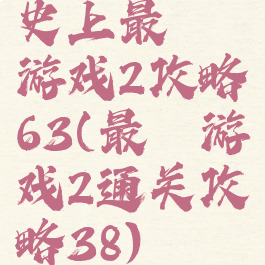 史上最
游戏2攻略
63(最 游
戏2通关攻
略38)